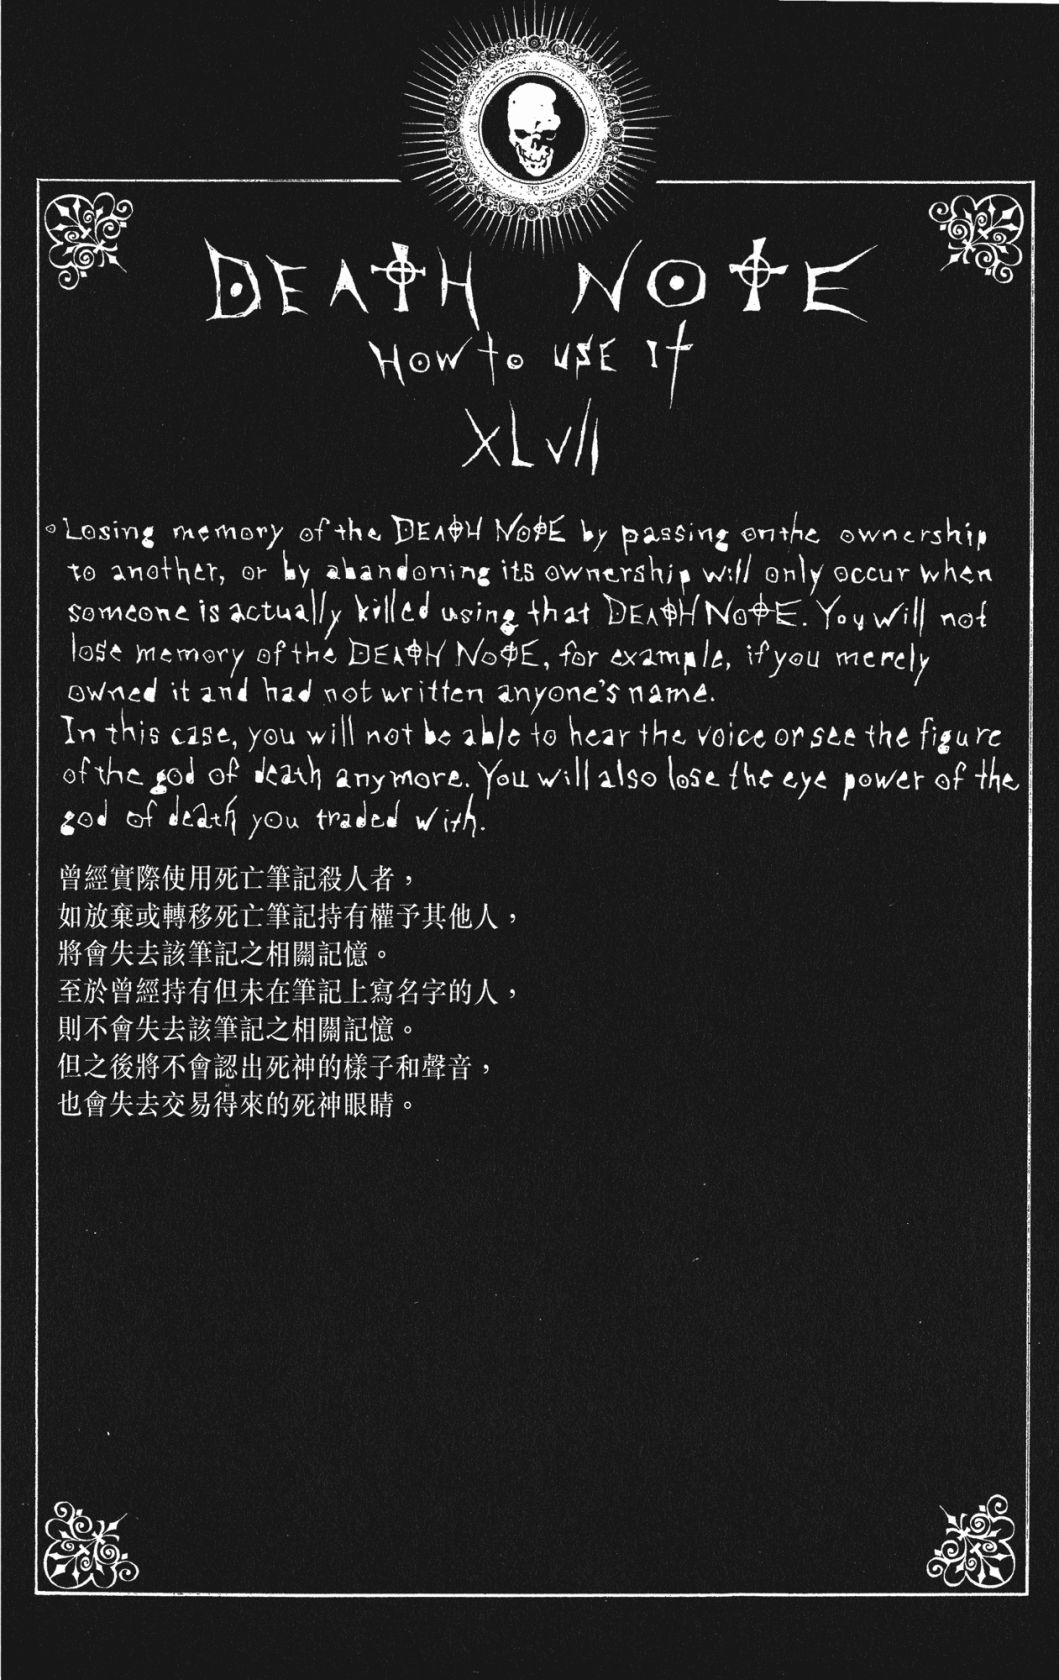 DEATH NOTE
HOW to USE IT
XLVII
Losing memory of the DEATH NOTE by passing on the ownership
to another, or by abandoning its ownership will only occur when
someone is actually killed using that DEATH NOTE. You will not
lose memory of the DEATH NOTE, for example, if you merely
owned it and had not written anyone's name.
In this case, you will not be able to hear the voice or see the figure
of the god of death anymore. You will also lose the eye power of the
god of death you traded with.
曾經實際使用死亡筆記殺人者，
如放棄或轉移死亡筆記持有權予其他人，
將會失去該筆記之相關記憶。
至於曾經持有但未在筆記上寫名字的人，
則不會失去該筆記之相關記憶。
但之後將不會認出死神的樣子和聲音，
也會失去交易得來的死神眼睛。